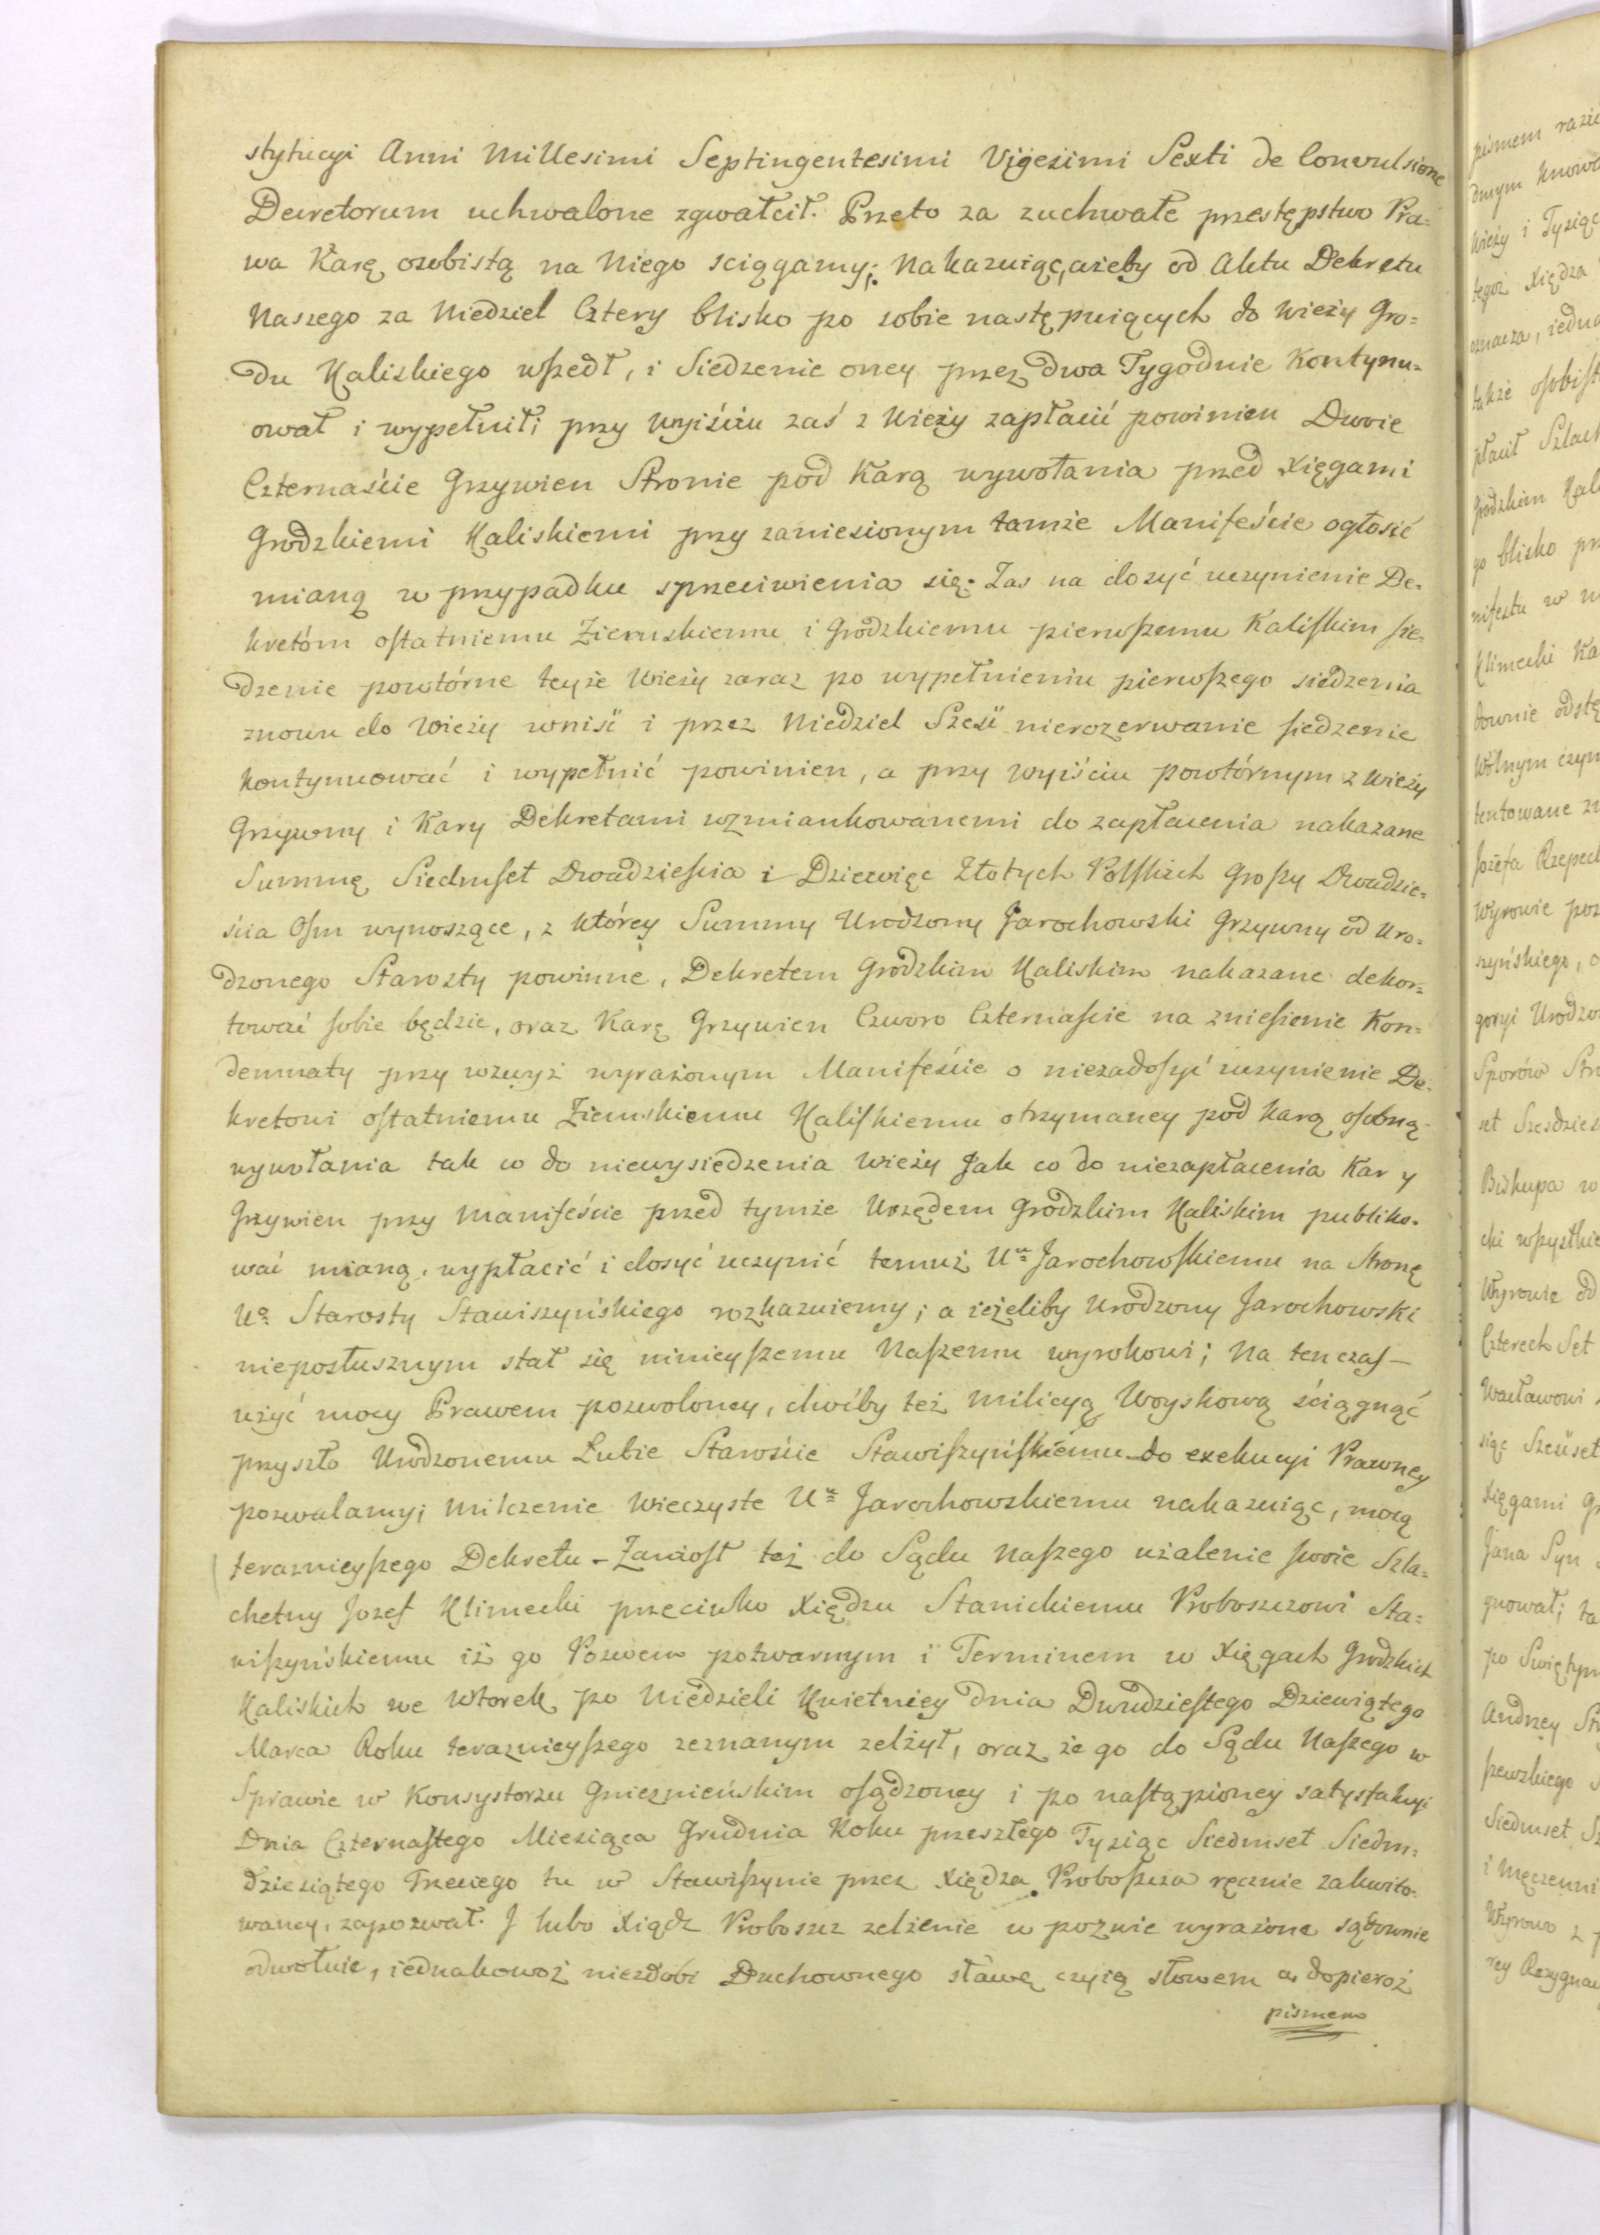 stytucyi Anni Millesimi Septingentesimi Vigesimi Sexti de Convulsione
Decretorum uchwalone zgwałcił. Przeto za zuchwałe przestępstwo Pra=
wa Karę osobistą na Niego sciągamy; Nakazuiąc, ażeby od Aktu Dekretu
Naszego za Niedziel Cztery blisko po sobie następuiących do Wieży Gro=
du Kaliskiego wszedł, i Siedzenie oney przez dwa Tygodnie Kontynu=
ował i wypełnił; przy wyiściu zaś z Wieży zapłacić powinien Dwoie
Czternaście Grzywien Stronie pod Karą wywołania przed Xięgami
Grodzkiemi Kaliskiemi przy zaniesionym tamże Manifeście ogłosić
mianą w przypadku sprzeciwienia się. Zas na dosyć uczynienie De=
kretóm ostatniemu Ziemskiemu i Grodzkiemu pierwszemu Kaliskim sie=
dzenie powtórne teyże Wieży zaraz po wypełnieniu pierwszego siedzenia
znowu do Wieży wniść i przez Niedziel Sześć nierozerwanie siedzenie
kontynuować i wypełnić powinien, a przy wyiściu powtórnym z Wieży
Grzywny i Kary Dekretami wzmiankowanemi do zapłacenia nakazane
Summę Siedmset Dwadziescia i Dziewięc Złotych Polskich Groszy Dwadzie=
ścia Osm wynoszące, z którey Summy Urodzony Jarochowski Grzywny od Uro=
dzonego Starosty powinne, Dekretem Grodzkim Kaliskim nakazane dekor=
tować sobie będzie, oraz Karę Grzywien Czworo Czternascie na zniesienie Kon=
demnaty przy wzwyż wyrażonym Manifeście o niezadosyć uczynienie De=
kretowi ostatniemu Ziemskiemu Kaliskiemu otrzymaney pod karą osobną
wywołania tak co do niewysiedzenia Wieży Jak co do niezapłacenia Kar y
Grzywien przy Manifeście przed tymże Urzędem Grodzkim Kaliskim publiko=
wać mianą, wypłacić i dosyć uczynić temuż Uu Jarochowskiemu na Stronę
Uo Starosty Stawiszyńskiego rozkazuiemy; a ieżeliby Urodzony Jarochowski
nieposłusznym stał się ninieyszemu Naszemu wyrokowi; Na ten czas—
użyć mocy Prawem pozwoloney, choćby też Milicyą Woyskową ściągnąć
przyszło Urodzonemu Lubie Starościc Stawiszyńskiemu do exekucyi Prawney
pozwalamy; Milczenie Wieczyste Uu Jarochowskiemu nakazuiąc, mocą
teraznieyszego Dekretu - Zaniosł też do Sądu Naszego użalenie swoie Szla=
chetny Jozef Klimecki przeciwko Xiędzu Stanickiemu Proboszczowi Sta=
wiszyńskiemu iż go Pozwem potwarnym i Terminem w Xięgach Grodzkich
Kaliskich we Wtorek po Niedzieli Kwietniey dnia Dwudziestego Dziewiątego
Marca Roku teraznieyszego zeznanym zelżył, oraz że go do Sądu Naszego w
Sprawie w Konsystorzu Gnieznieńskim osądzoney i po nastąpioney satysfakcyi
Dnia Czternastego Miesiąca Grudnia Roku przeszłego Tysiąc Siedmset Siedm=
dziesiątego Trzeciego tu w Stawiszynie przez Xiędza Proboszcza ręcznie zakwito=
waney, zapozwał. J lubo Xiądz Proboszcz zelżenie w pozwie wyrażone sądownie
odwołuie, iednakowoż niezdobi Duchownego sławę czyią słowem a dopieroż
pismem